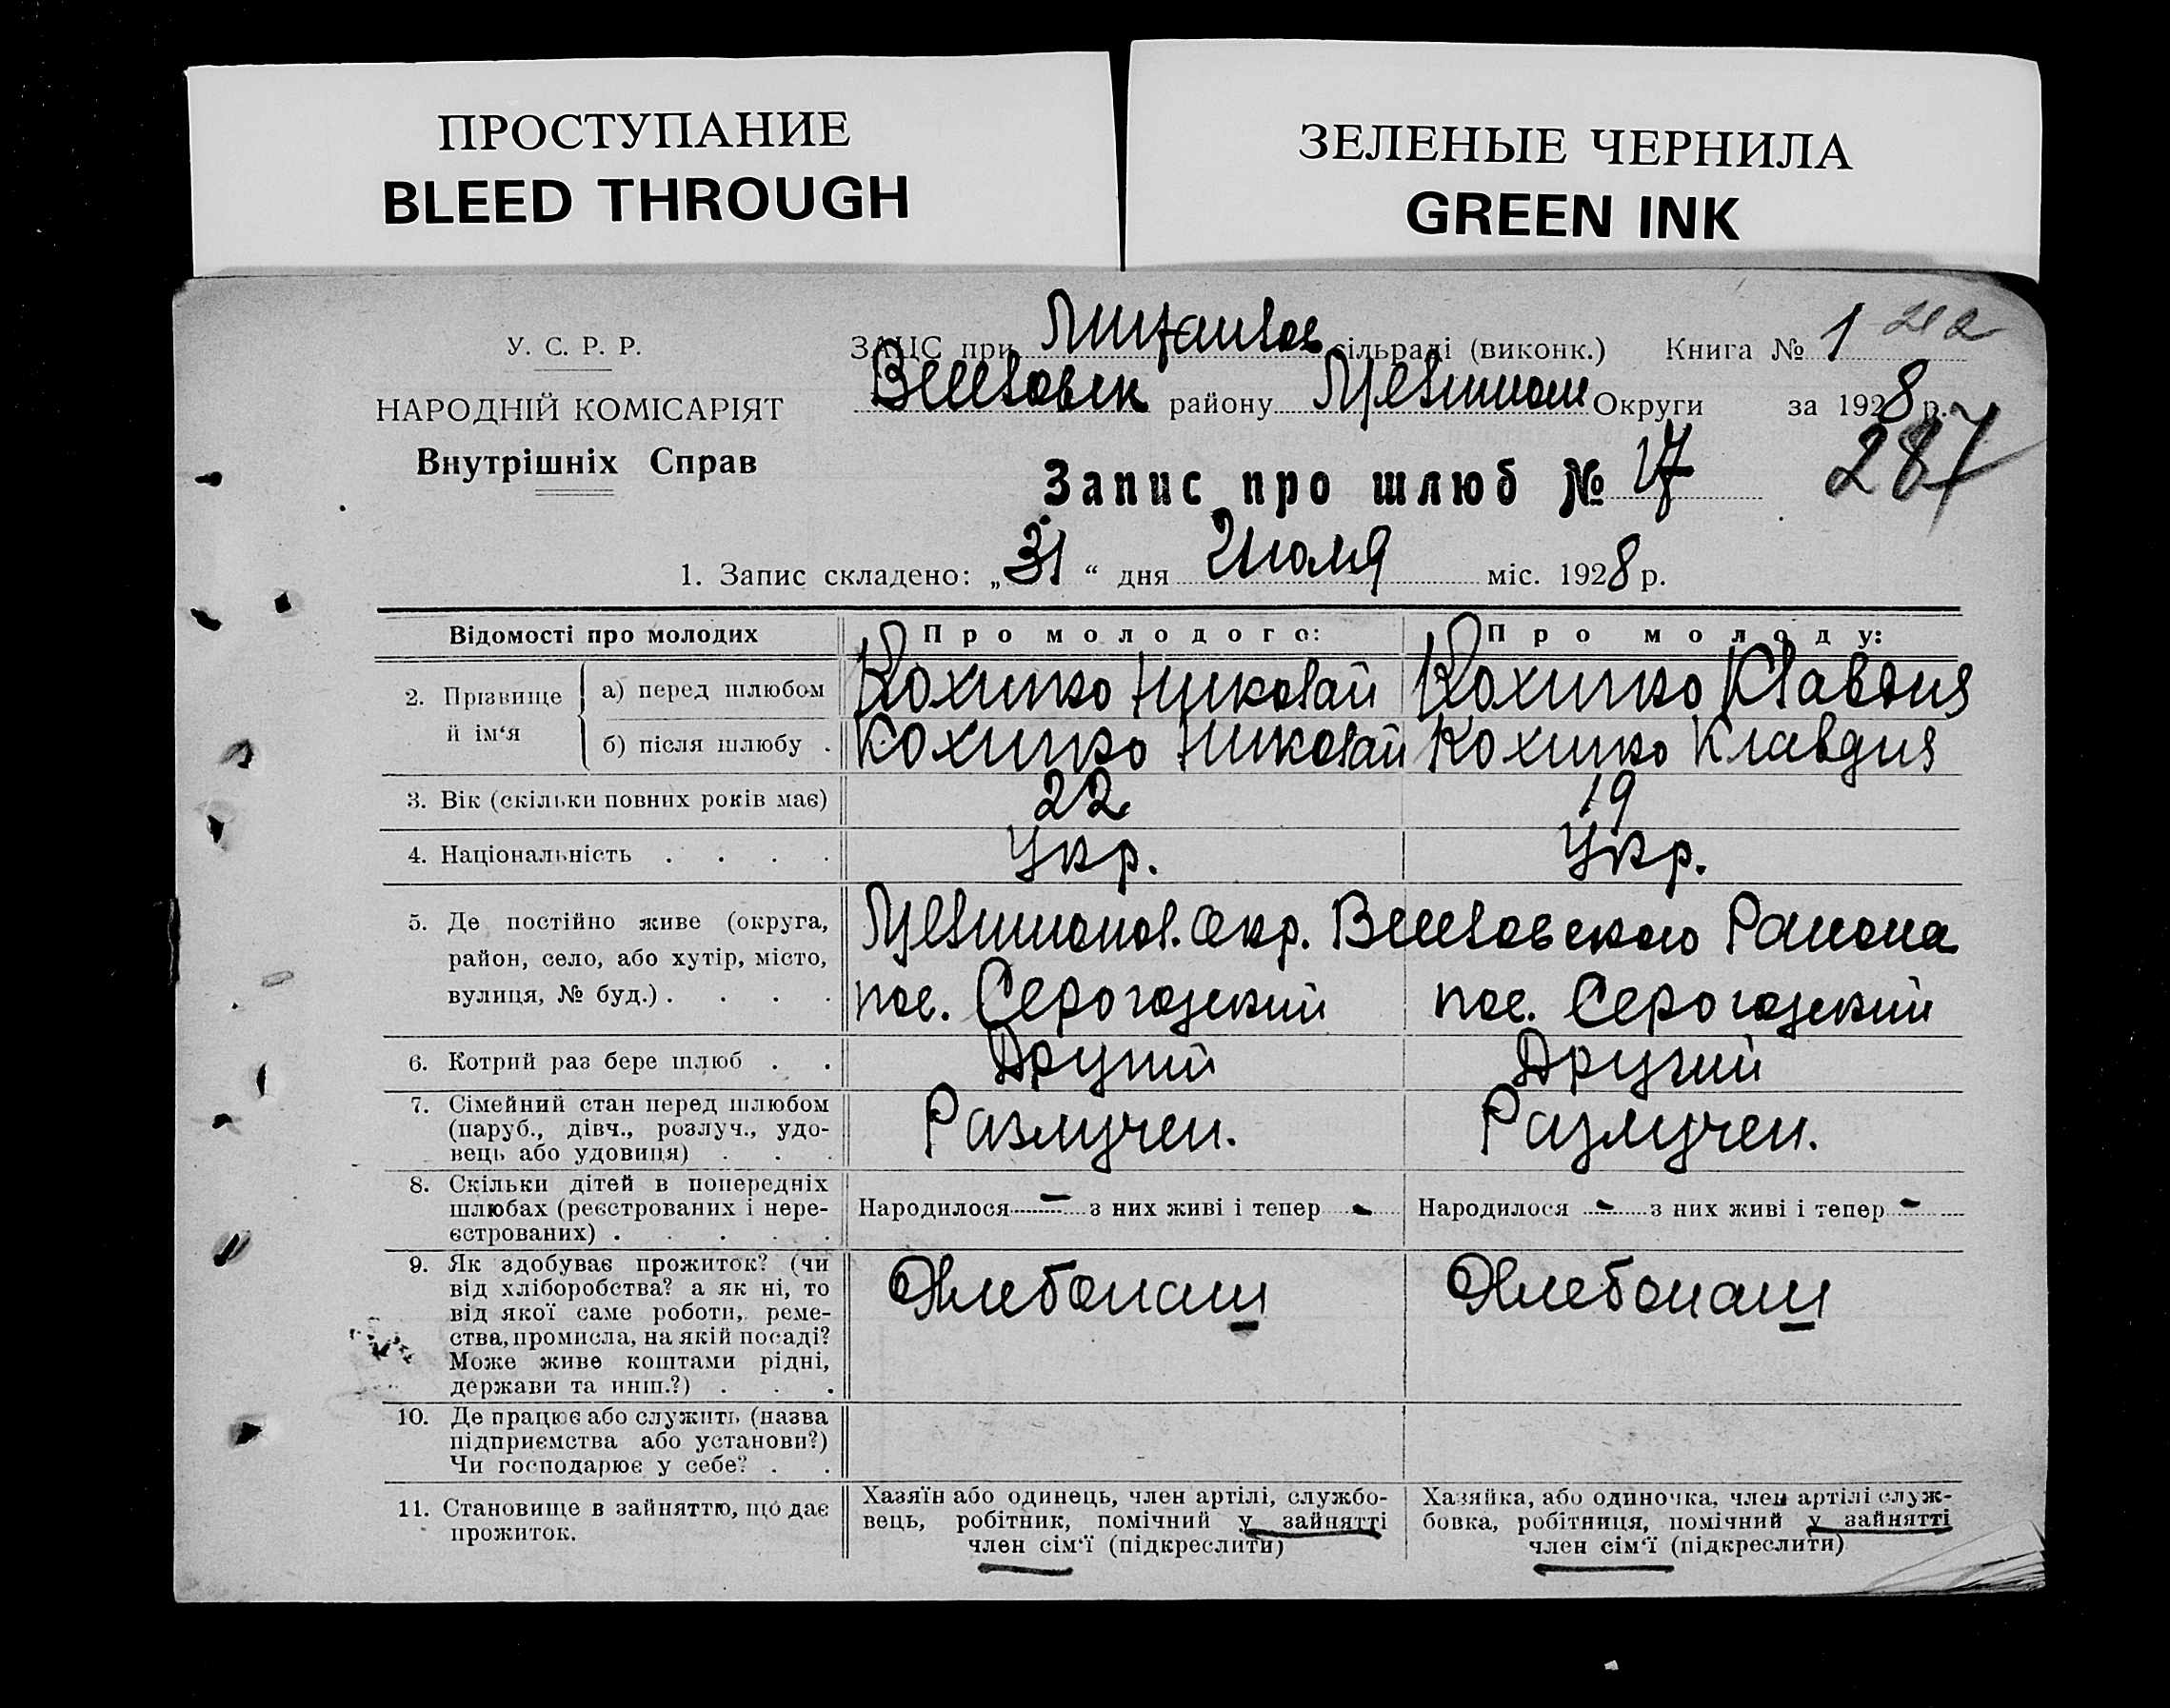 ПРОСТУПАНИЕ
BLEED THROUGH
ЗЕЛЕНЫЕ ЧЕРНИЛА
GREEN INK
У. С. Р. Р.
НАРОДНІЙ КОМІСАРІЯТ
Внутрішніх Справ
ЗАЦС при сільраді (виконк.) Книга № 1 212
району Округи за 1928 р.
287
Запис про шлюб № 17
1. Запис складено: „31“ дня Июля міс. 1928 р.
Відомості про молодих
Про молодого:
Про молоду:
2. Прізвище й ім‘я
а) перед шлюбом
Кохитко Николай
Кохитко Клавдия
б) після шлюбу .
Кохитко Николай
Кохитко Клавдия
3. Вік (скільки повних років має)
22
19
4. Національність . . . .
Укр.
Укр.
5. Де постійно живе (округа,
район, село, або хутір, місто,
вулиця, № буд.) . . . .
окр. Района
пос. Серогозский
пос. Серогозский
6. Котрий раз бере шлюб . .
Другий
Другий
7. Сімейний стан перед шлюбом
(паруб., дівч., розлуч., удо-
вець або удовиця) . . .
Разлучен.
Разлучен.
8. Скільки дітей в попередніх
шлюбах (реєстрованих і нере-
єстрованих) . . . . .
Народилося — з них живі і тепер -
Народилося - з них живі і тепер -
9. Як здобуває прожиток? (чи
від хліборобства? а як ні, то
від якої саме роботи, реме-
ства, промисла, на якій посаді?
Може живе коштами рідні,
держави та инш.?) . . .
Хлебопаш
Хлебопаш
10. Де працює або служить (назва
підприємства або установи?)
Чи господарює у себе? . .
11. Становище в зайняттю, що дає
прожиток.
Хазяїн або одинець, член артілі, службо-
вець, робітник, помічний у зайнятті
член сім‘ї (підкреслити)
Хазяйка, або одиночка, член артілі служ-
бовка, робітниця, помічний у зайнятті
член сім‘ї (підкреслити)